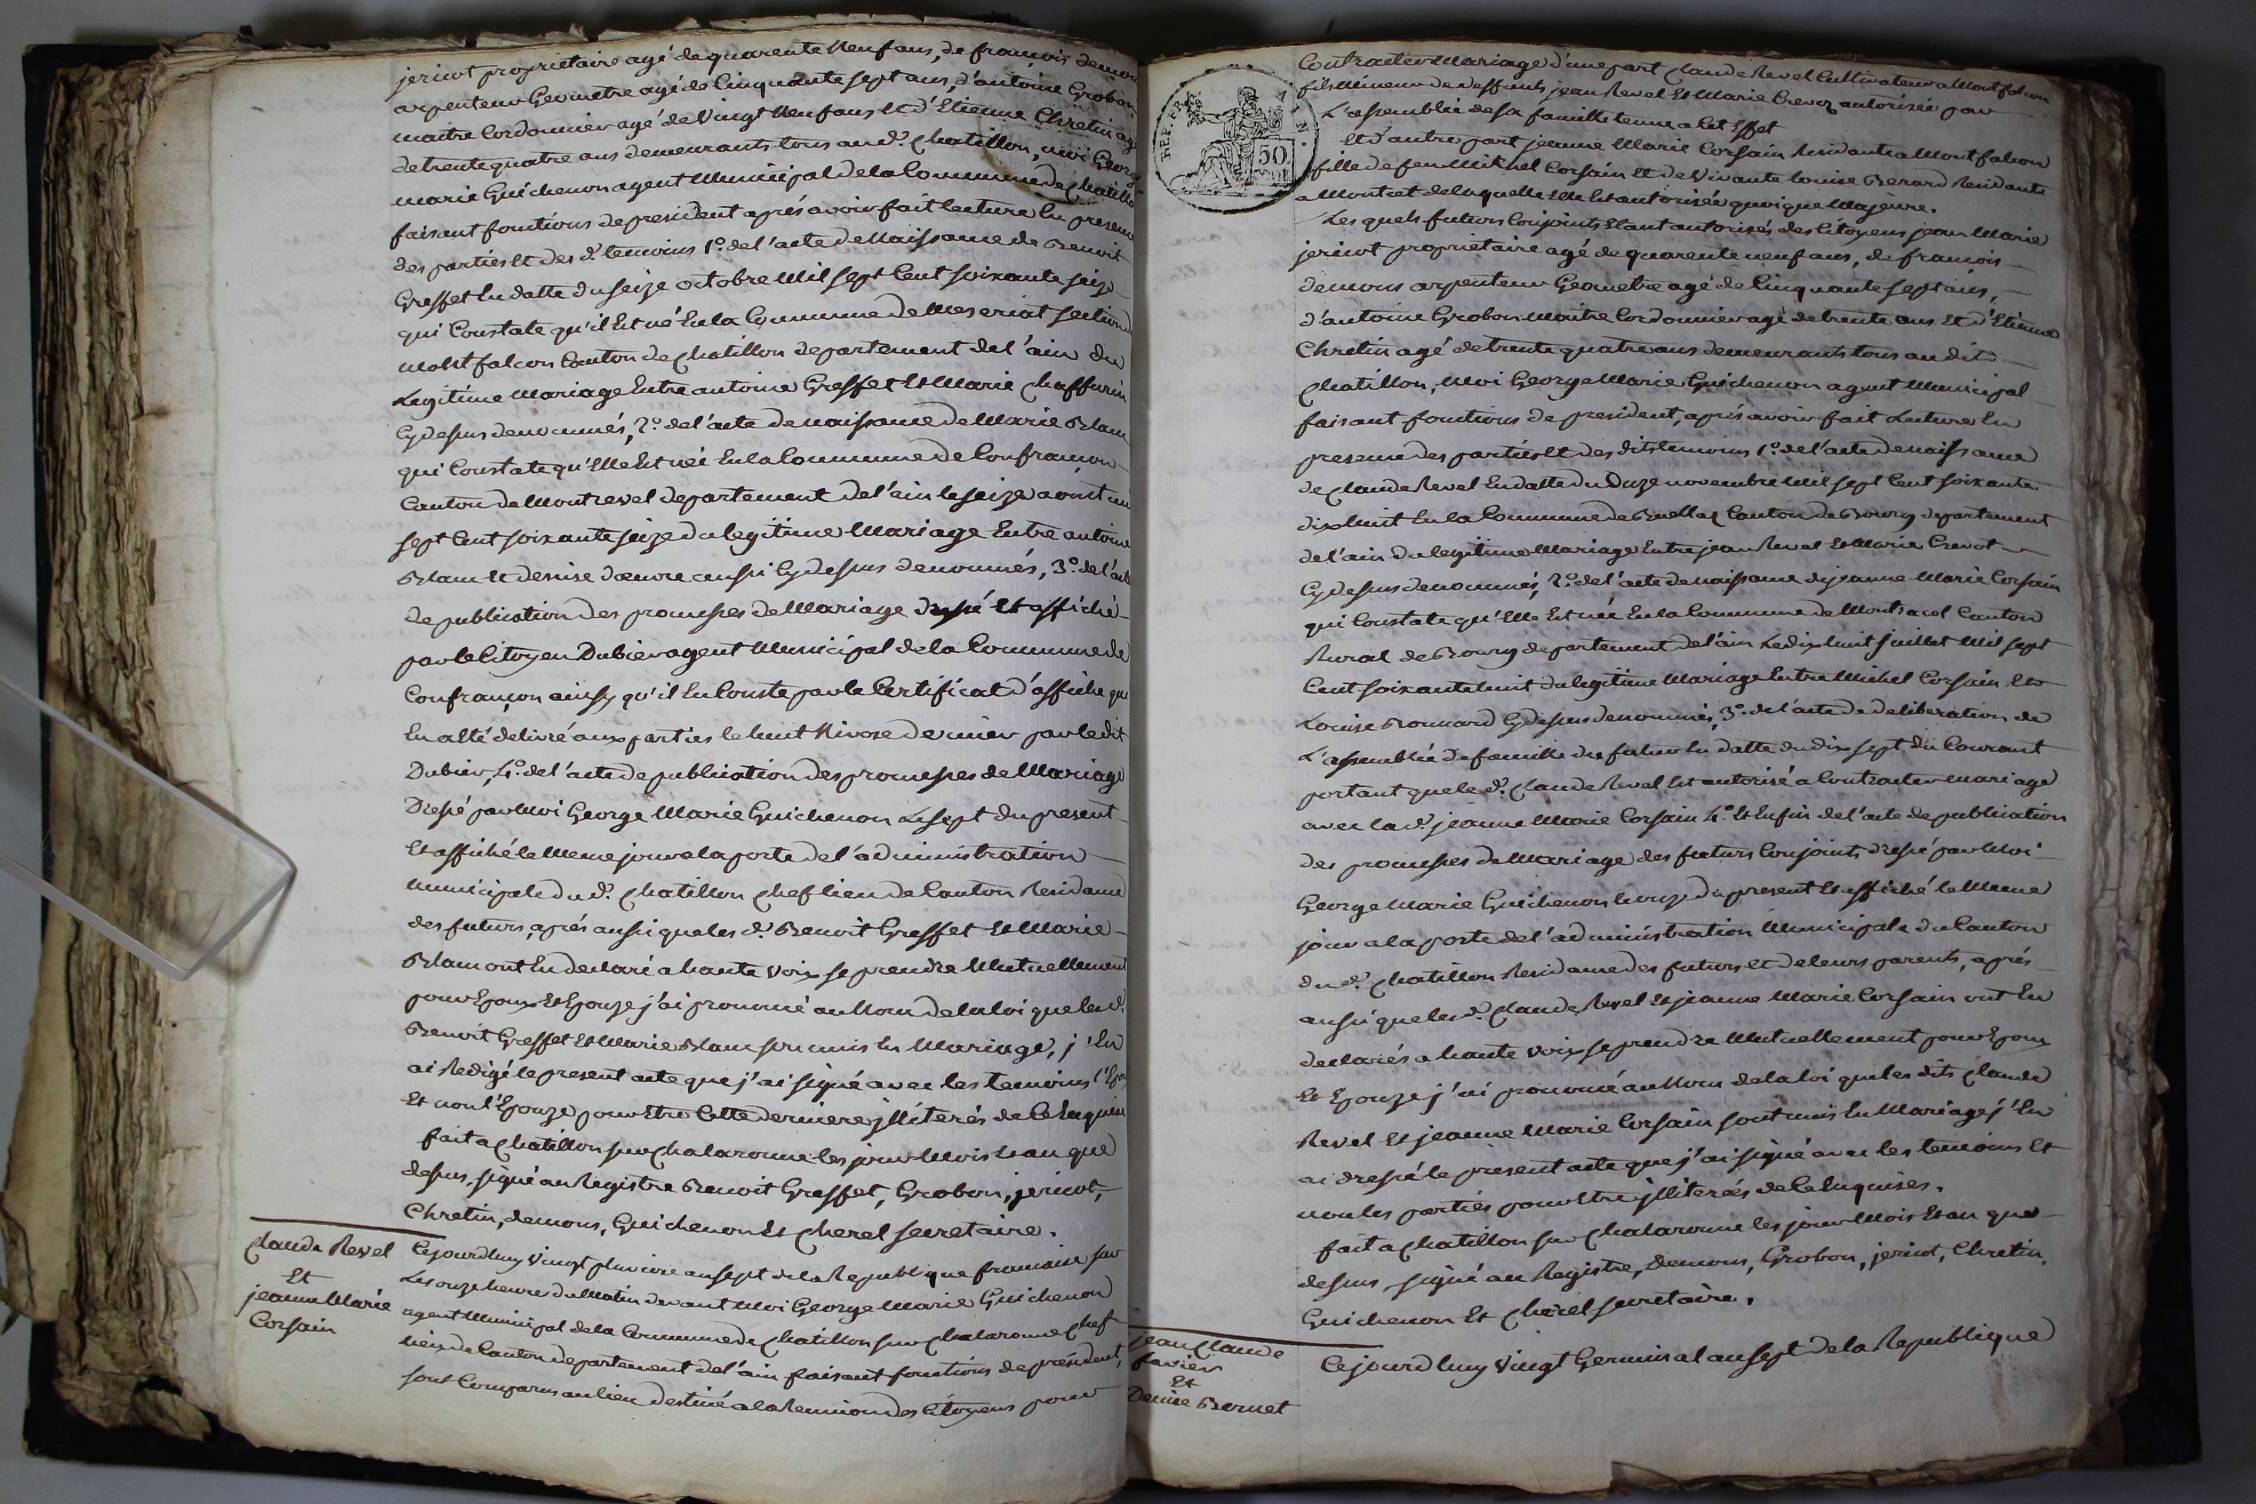 jericot propriétaire agé de quarente Neuf ans, de françois demons
arpenteur Géomètre agé de Cinquante sept ans, d'antoine Grobon
maitre Cordonnier agé de Vingt Neuf ans Et d'Etienne Chretin agé
de trente quatre ans demeurants tous au d. Chatillon, moi George
marie Guichenon agent Municipal de la Commune de Chatillon
faisant fonctions de president aprés avoir fait lecture En presence
des parties et des d. temoins 1°. de l'acte de Naissance de Benoit
Greffet En datte du seize octobre Mil sept Cent soixante seize
qui Constate qu'il Est né En la Commune de Meseriat section de
montfalcon Canton de Chatillon departement de l'ain du
Legitime Mariage Entre antoine Greffet Et Marie Chaffurin
Cy dessus denommés, 2°. de l'acte de naissance de Marie Blanc
qui Constate qu'Elle Est née En la Commune de Confrançon
Canton de Montrevel departement de l'ain le seize aoust mil
sept Cent soixante seize du legitime Mariage Entre antoine
Blanc Et denise doeuvre aussi Cy dessus denommés, 3°. de l'acte
de publication des promesses de Mariage dressé Et affiché
par le Citoyen Dubier agent Municipal de la Commune de
Confrançon ainsy qu'il En Conste par le Certificat d'affiche qui
En a Eté delivré aux parties le huit Nivose dernier par le dit
Dubier, 4°. de l'acte de publication des promesses de Mariage
Dressé par Moi George Marie Guichenon Le sept du present
Et affiché le Meme jour a la porte de l'administration
municipale du d. Chatillon Chef lieu de Canton Residence
des futurs, aprés aussi que les d. Benoit Greffet Et Marie
Blanc ont En declaré a haute Voix se prendre Mutuellement
pour Epoux Et Epouze j'ai prononcé au Nom de la loi que les d.
Benoit Greffet Et Marie Blanc sont unis En Mariage, j'En
ai Redigé le present acte que j'ai signé avec les temoins l'Epoux
Et non l'Epouze pour Etre Cette derniere jlliterés de Ce Enquise
fait a Chatillon sur Chalaronne les jour Mois Et an que
dessus, signé au Registre Benoit Greffet, Grobon, jericot,
Chretin, demons, Guichenon Et Cherel secretaire.
Claude Revel
Et
jeanne Marie
Corsain
Cejourdhuy Vingt pluviose an sept de la Republique francaise sur
Les onze heures du Matin devant Moi George Marie Guichenon
agent Municipal de la Commune de Chatillon sur Chalaronne Chef
lieu de Canton departement de l'ain faisant fonctions de président,
sont Comparus au lieu destiné a la Reunion des Citoyens pour
REP. FRA.
50
Contracter Mariage d'une part Claude Revel Cultivateur a Montfalcon
fils Mineur de deffunts jean Revel Et Marie Crevoz autorisée par
L'assemblée de sa famille tenue a Cet Effet
Et d'autre part jeanne Marie Corsain Residante a Montfalcon
fille de feu Mikhel Corsain Et de Vivante louise Berard Residante
a Montcet de laquelle Elle Est autorisée quoique Majeure.
Les quels futurs Conjoints Etant autorisés des Citoyens jean Marie
jericot propriétaire agé de quarente neuf ans, de francois
demons arpenteur Géometre agé de Cinquante sept ans,
d'antoine Grobon Maitre Cordonnier agé de trente ans Et d'Etienne
Chretin agé de trente quatre ans demeurants tous au dit
Chatillon, Moi George Marie Guichenon agent Municipal
faisant fonctions de president, aprés avoir fait Lecture En
presence des parties Et des dits temoins 1°. de l'acte de naissance
de Claude Revel En datte du Duze novembre Mil sept Cent soixante
dix huit En la Commune de Buellas Canton de Bourg departement
de l'ain du legitime Mariage Entre jean Revel Et Marie Crevot
Cy dessus denommés, 2°. de l'acte de naissance de jeanne Marie Corsain
qui Constate qu'Elle Est née En la Commune de Montracol Canton
Rural de Bourg departement de l'ain Le dix huit juillet Mil sept
Cent soixante huit du legitime Mariage Entre Michel Corsain Et
Louise Bounard Cy dessus denommés, 3°. de l'acte de deliberation de
L'assemblée de famille du futur En datte du dix sept du Courant
portant que le d. Claude Revel Est autorisé a Contracter mariage
avec la d. jeanne Marie Corsain 4°. Et Enfin de l'acte de publication
des promesses de Mariage des futurs Conjoints dressé par Moi
George Marie Guichenon le onze du present Et affiché le Meme
jour a la porte de l'administration Municipale du Canton
du d. Chatillon Residance des futurs et de leurs parents, aprés
aussi que les d. Claude Revel Et jeanne Marie Corsain ont En
declarés a haute Voix se prendre Mutuellement pour Epoux
Et Epouze j'ai prononcé au Nom de la loi que les dits Claude
Revel Et jeanne Marie Corsain sont unis En Mariage j'En
ai dressé le present acte que j'ai signé avec les temoins Et
non les parties pour Etre jlliterés de Ce Enquises.
fait a Chatillon sur Chalaronne les jour Mois Et an que
dessus signé au Registre, Demons, Grobon, jericot, Chretin,
Guichenon Et Cherel secretaire.
jean Claude
favier
Et
Denise Bernet
Cejourdhuy Vingt Germinal an sept de la Republique